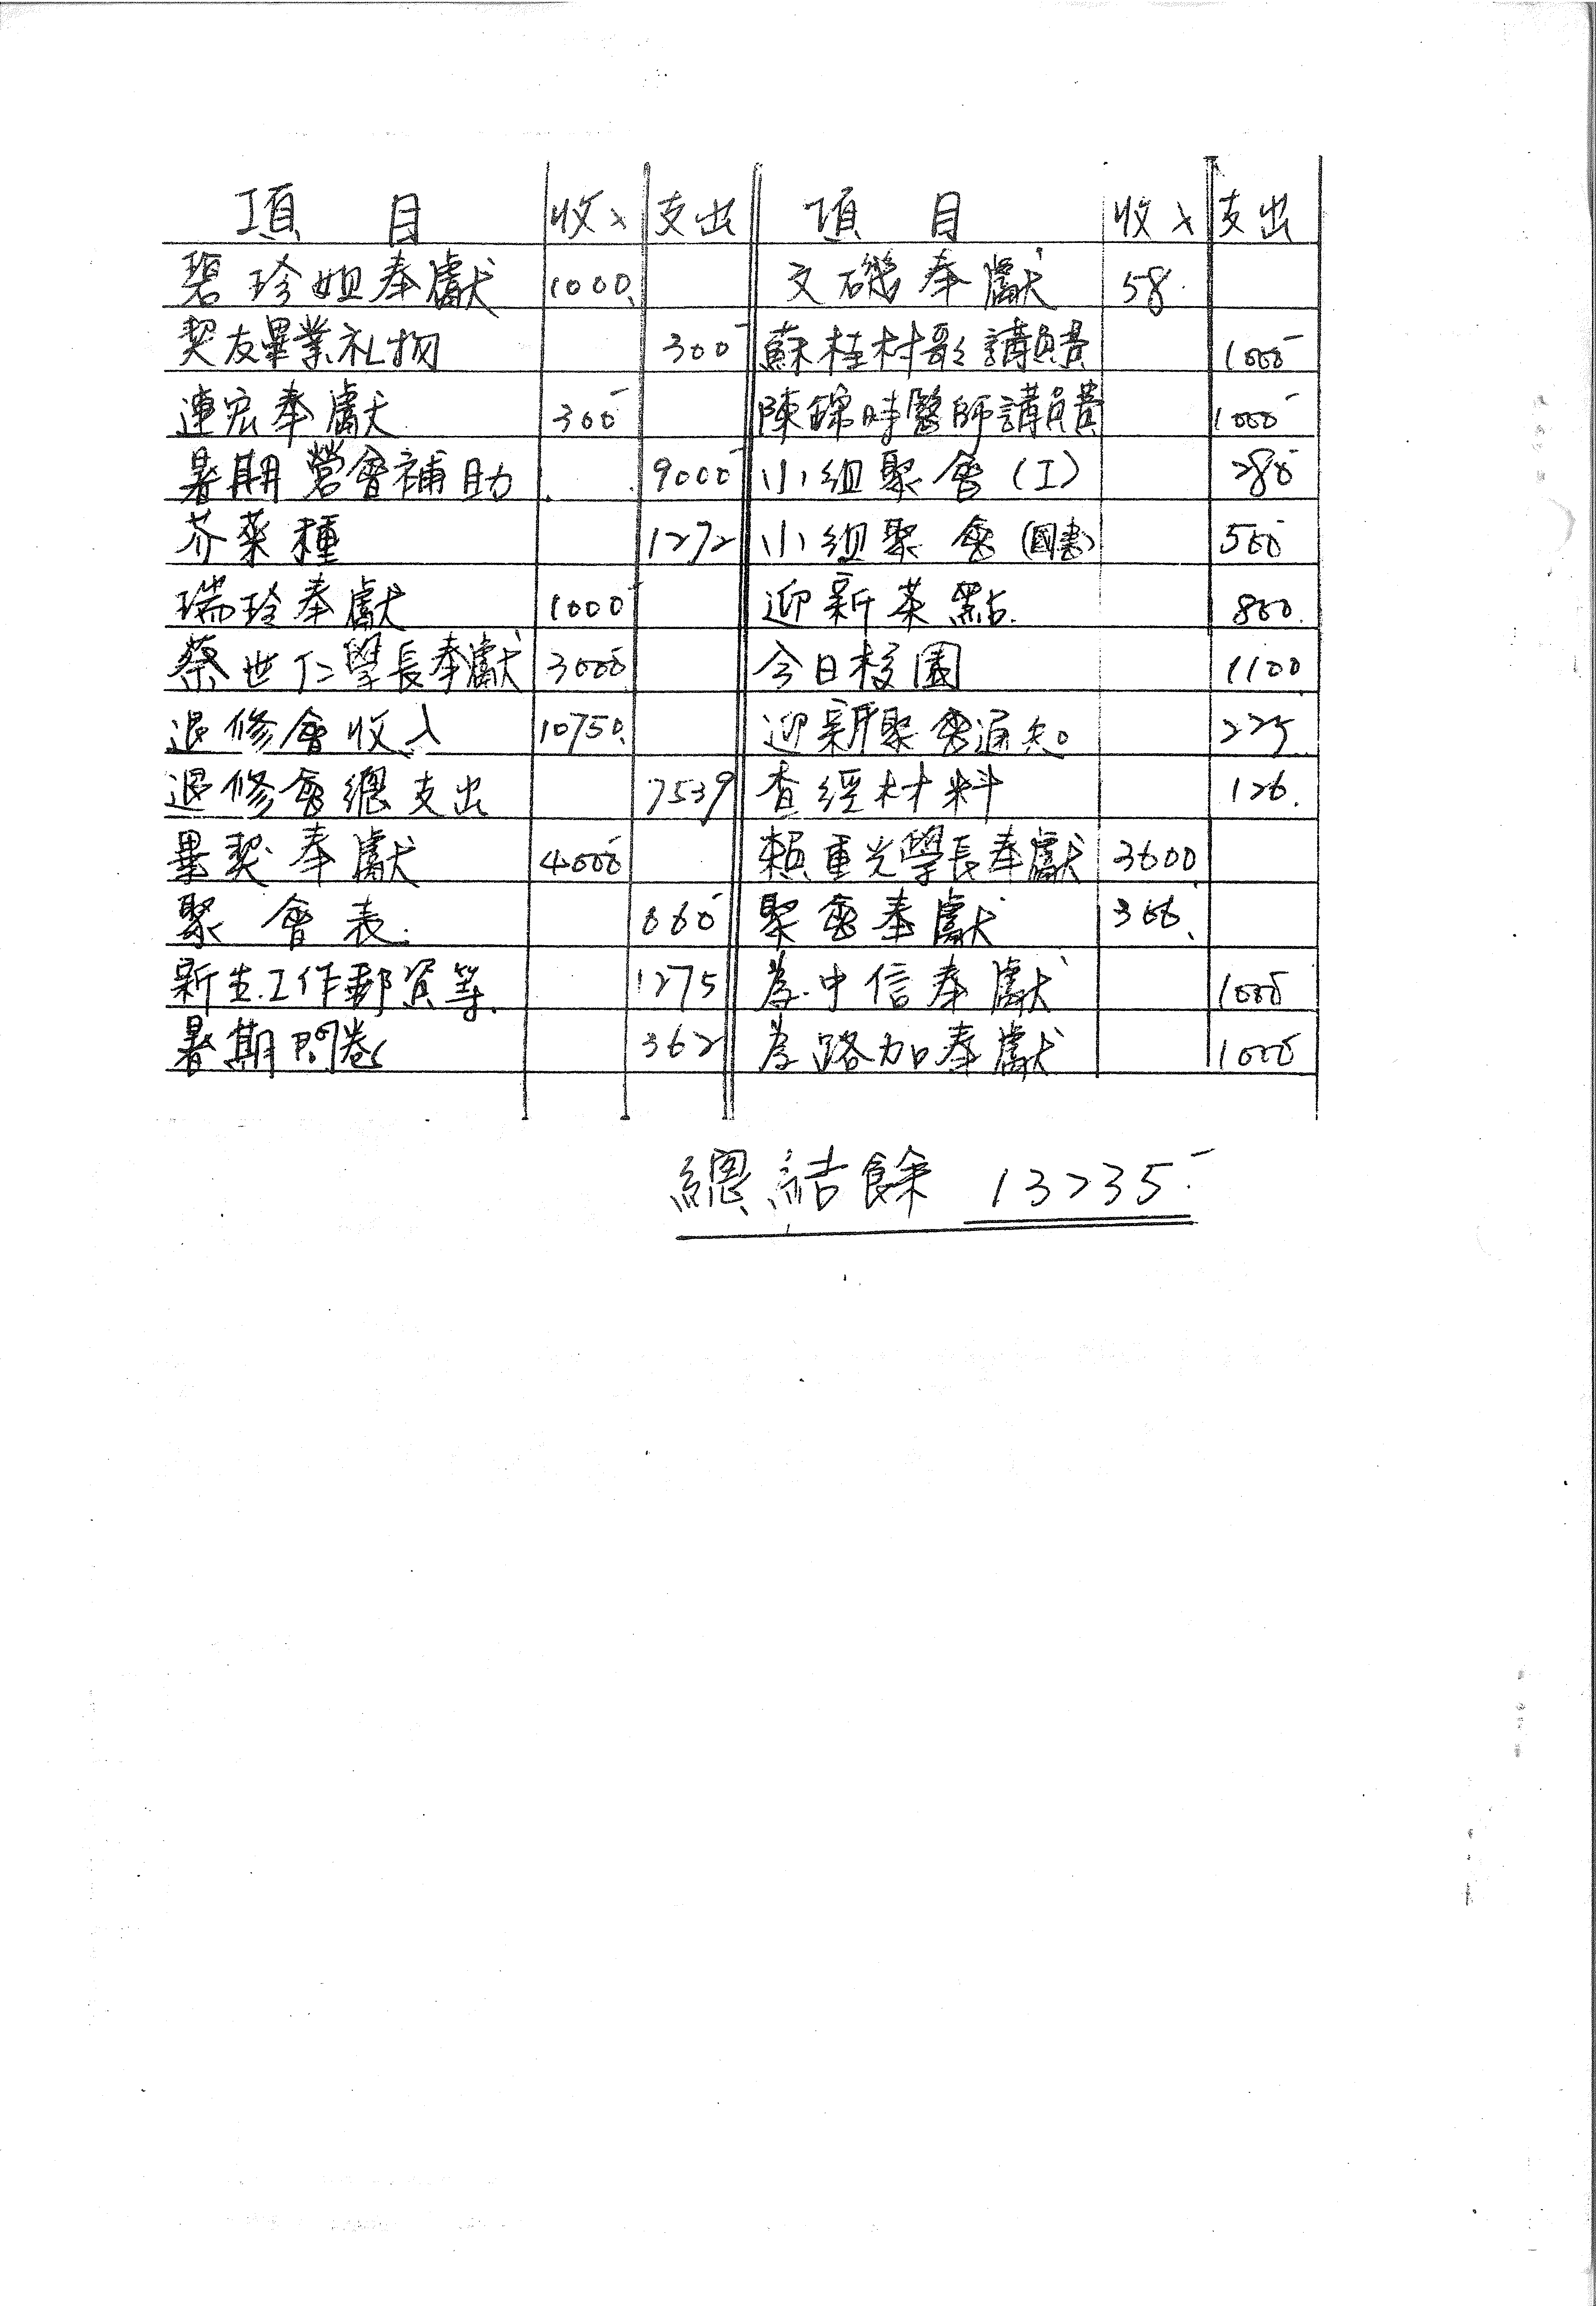 項 目 收入 支出 項 目 收入 支出
碧珍姐奉獻 1000. 文磯奉獻 58.
契友畢業礼物 300 蘇桂村歌講員費 1000
連宏奉獻 300 陳錦時醫師講員費 1000
暑期營會補助 9000 小組聚會(I) 280
芥菜種 1272 小組聚會(圖書) 500
瑞玲奉獻 1000 迎新茶點. 800.
蔡世仁學長奉獻 3000 今日校園 1100
退修會收入 10750. 迎新聚會通知。 225.
退修會總支出 7539 查經材料 126.
畢契奉獻 4000 賴重光學長奉獻 3600
聚會表. 860 聚會奉獻 300.
新生工作郵資等. 1275 為中信奉獻 1000
暑期問卷 362 為路加奉獻 1000
總結餘 13235.